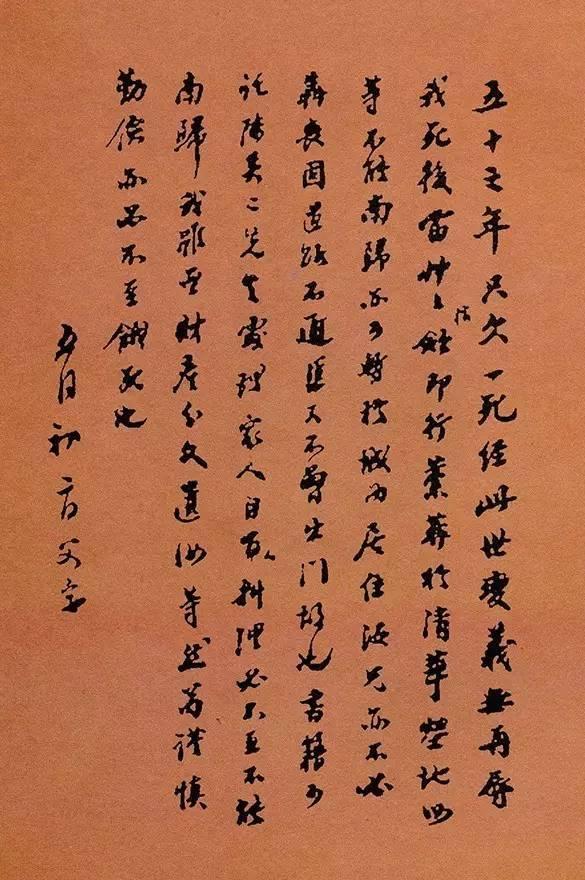 五十之年只欠一死經此世變義無再辱
我死後當艸艸棺殮即行藁葬於清華塋地汝
等不能南歸亦可暫於城內居住汝兄亦不必
奔喪因道路不通渠又不曾出門故也書籍可
託陳吳二先生處理家人自有人料理必不至不能
南歸我雖無財產分文遺汝等然苟謹慎
勤儉亦必不至餓死也
五月初二日父字